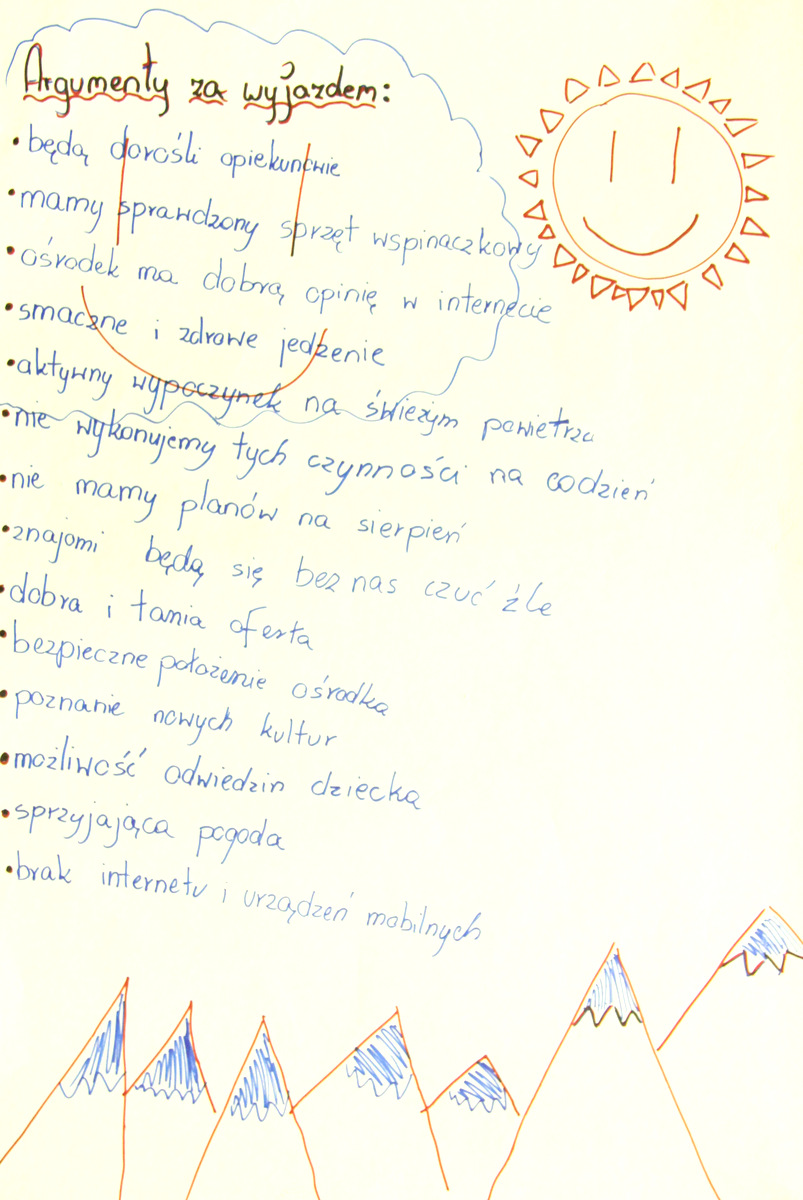 Argumenty za wyjazdem:
• będą dorośli opiekunowie
• mamy sprawdzony sprzęt wspinaczkowy
• ośrodek ma dobrą opinię w internecie
• smaczne i zdrowe jedzenie
• aktywny wypoczynek na świeżym powietrzu
• nie wykonujemy tych czynności na codzień
• nie mamy planów na sierpień
• znajomi będą się bez nas czuć źle
• dobra i tania oferta
• bezpieczne położenie ośrodka
• poznanie nowych kultur
• możliwość odwiedzin dziecka
• sprzyjająca pogoda
• brak internetu i urządzeń mobilnych